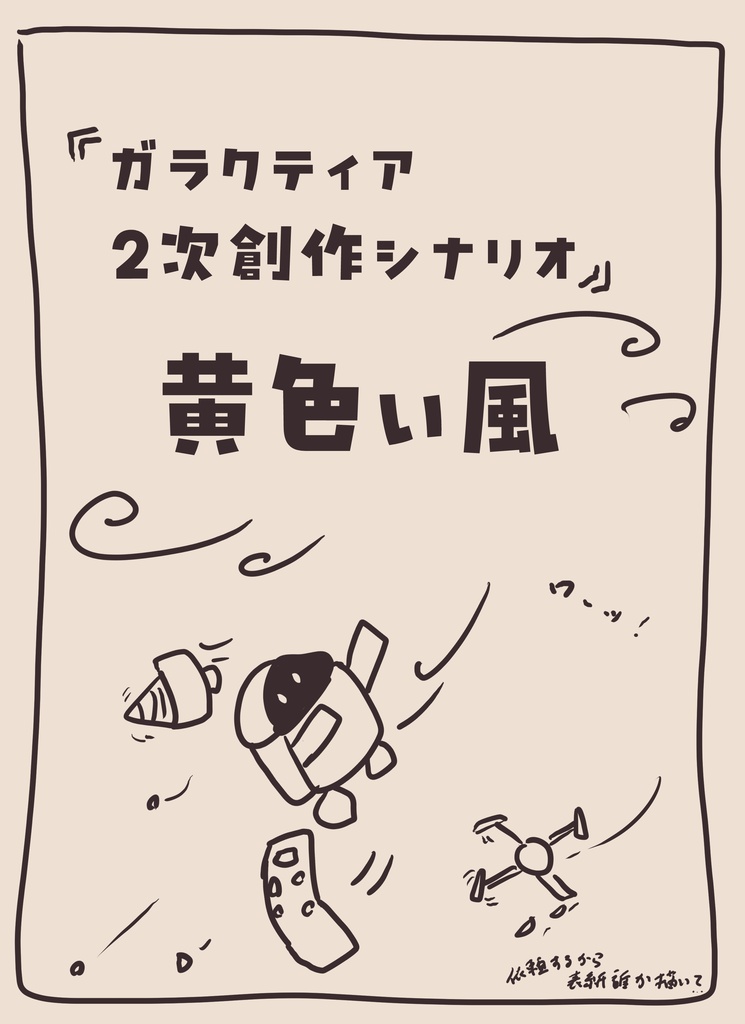 『ガラクティア
2次創作シナリオ』
黄色い風
ワーッ!
依頼するから
表紙誰か描いて